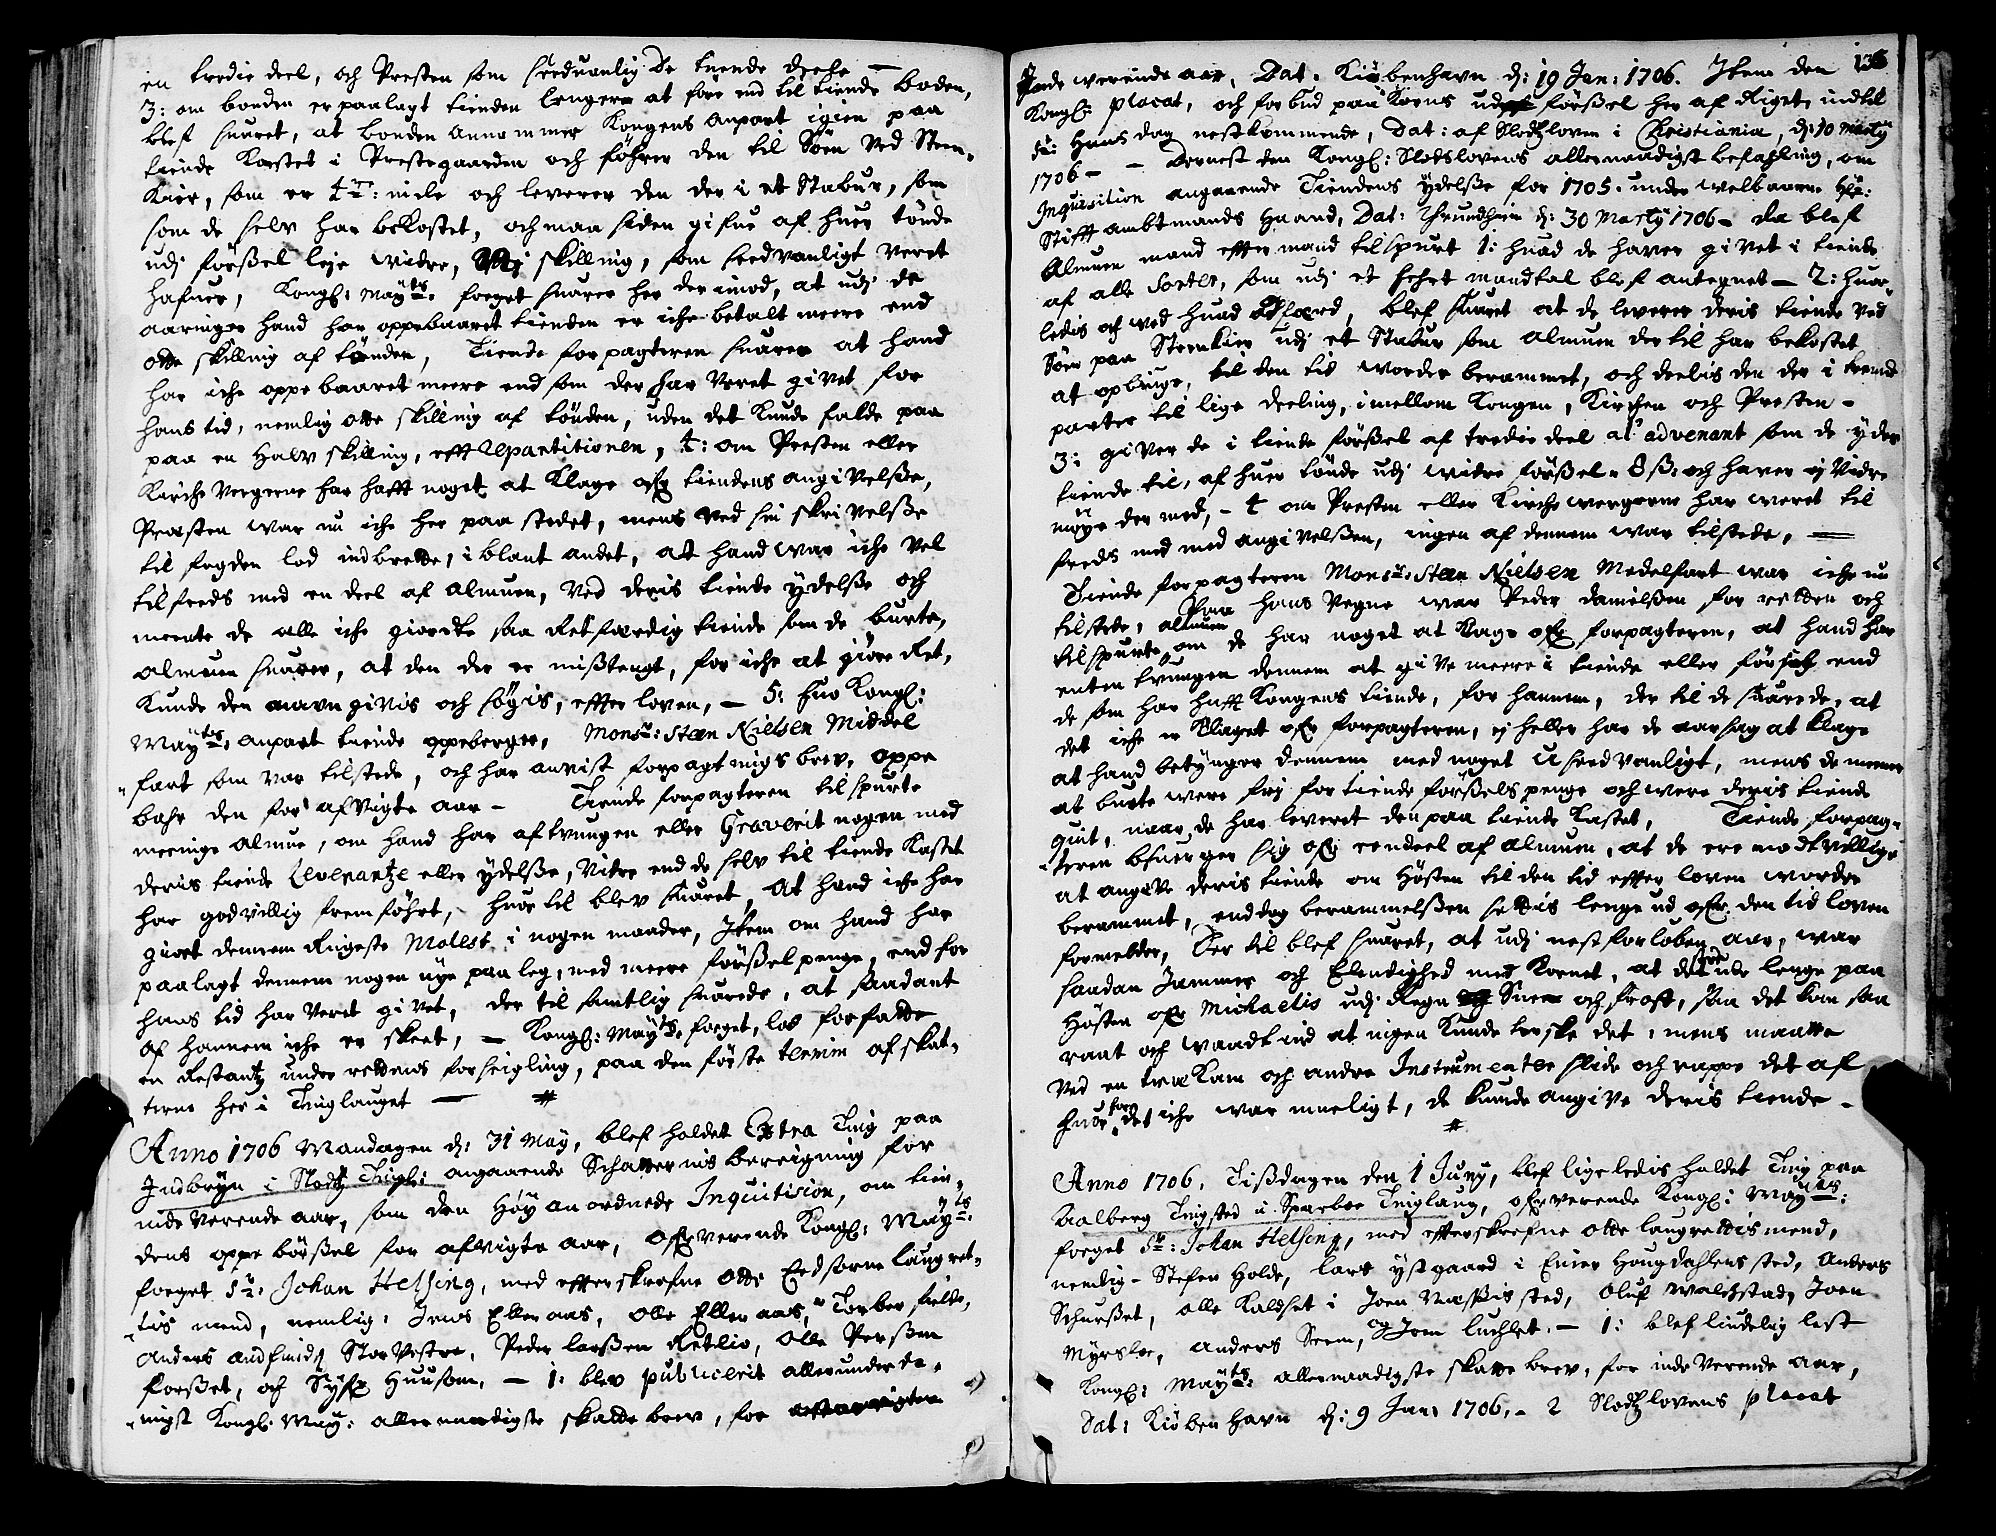 en tredie deel, och Presten som sædvanlig De tvende deele —
3: om bonden er paalagt tienden lengere at føre end til tiende boden,
blef svaret, at bonden annammer Kongens anpart igien paa
tiende Kastet i Prestegaarden och føhrer den til Søen ved Steen-
Kier, som er 4re: mile och leverer den der i et Stabur, som
som de selv har bekostet, och maa siden gifve af huer tønde
udj førsel leje videre, skilling, som sædvanligt veret
hafuer, Kongl: Mayts: foeget suarer her der imod, at udj de
aaringer hand har oppebaaret tienden er iche betalt meere end
otte skilling af tønden, Tiende forpagteren suarer at hand
har iche oppebaaret meere end som der har veret givet for
hans tid, nemlig otte skilling af tønden, uden det Kunde falde paa
paa en Halv skilling, efft Repartitionen, 4: om Presten eller
Kirche Vergerne har hafft noget at Klage ofr tiendens angivelsse,
Præsten war nu iche her paa stedet, mens ved sin skrivelsse
til fogden lod indberette, i blant andet, at hand war iche vel
tilfreds med en deel af almuen, ved deris tiende ydelsse och
meente de alle iche giordte saa Retfærdig tiende som de burte,
almuen suarer, at den der er mistengt, for iche at giøre Ret,
Kunde den navn givis och søgis, effter loven, — 5: huo Kongl:
Mayts: anpart tiende oppeberger, Monsr: Steen Nielsen Middel
fart som var tilstede, och har anvist forpagtnings brev, oppe
bahr den for afvigte aar — Tiende forpagteren tilspurte
meenige almue, om hand har aftvungen eller Graverit nogen med
deris tiende Leverantze eller ydelsse, vidre end de selv til tiende Kastet
har godvillig fremføhrt, huor til blev suaret, At hand iche har
giort dennem Ringeste Molest i nogen maader, Item om hand har
paalagt dennem nogen nye paaleg, med meere førsselpenge, end for
hans tid har veret givet, der til samtlig suarede, at saadant
af hannem iche er skeet, — Kongl: Mayts: foeget, lod forfatte
en Restantz under rettens forseigling, paa den første termin af skat-
terne her i Tinglauget —
Anno 1706 Mandagen d: 31 May, blef holdet Extra Ting paa
Indbryn i Stods Tingl: angaaende Schatternis beregning for
inde verende aar, som den Høy anordnede Inquisition, om tien-
dens oppe børssel for afvigte aar, Ofververende Kongl: Mayts:
foeget Sr: Johan Helsing, med effterskrefne Otte Eedsorne laugret-
tis mend, nemlig: Jens Elleraas, Olle Elleraas, Torber fielde,
Anders Andfindz StorVestre, Peder larssen Rettlie, Olle Perssen
forsset, och Syfr Huusom, — 1: blev publicerit allerunderda-
nigst Kongl: May: allernaadigste skattebrev, for
136
inde werende aar, Dat. Kiøbenhavn d: 19 Jan: 1706. Item den
Kongl: placat, och forbud paa Korns ud førssel her af Riget, indtil
St: Hans dag nestkommende, Dat: af Slodtzloven i Christiania, d: 10 Marty
1706 — Dernest den Kongl: Slodslovens allernaadigst befahling, om
Inquisition angaaende Tiendens ydelsse for 1705. under welbaarne Hr:
Stifftambtmands Haand, Dat: Thrundhiem d: 30 Marty 1706 — Da blef
Almuen mand effter mand tilspurt 1: huad de haver givet i tiende
af alle Sorter, som udj et sehrt mandtal blef antegnet — 2: huor-
ledis och ved huad adfærd, blef suaret at de leverer deris tiende ved
Søen paa Steenkier udj et Stabur som almuen dertil har bekostet
at opbruge, til den tid worder berammet, och deelis den der i trende
parter til lige deeling, imellom Kongen, Kirchen och Presten —
3: giver de i tiende førssel af tredie deel al' advenant som de yder
tiende til, af huer tønde udj widre førssel 8 ß: och haver ej vidre
møye der med, — 4 om Presten eller Kirche wergerne har weret til
freds med angivelssen, ingen af dennem war tilstede, —
Tiende forpagteren Monsr: Steen Nielsen Medelfart war iche nu
tilstede, Paa hans vegne war Peder danielssen for retten och
tilspurte almuen om de har noget at Klage ofr forpagteren, at hand har
enten tvungen dennem at give meere i tiende eller førssel end
de som har hafft Kongens tiende, for hannem, der til de suarede, at
det iche er Klaget ofr forpagteren, ej heller har de aarsag at klage
at hand betynger dennem med noget U sædvanligt, mens de meener
at burte were frj for tiende førssels penge och were deris tiende
qvit, naar de har leveret den paa tiende Kastet, Tiende forpag-
teren besuerger sig ofr eendeel af almuen, at de ere modtvillige
at angive deris tiende om Høsten til den tid effter loven worder
berammet, enddog berammelssen settis lenge ud ofr den tid loven
formelder, Der til blef suaret, at udj nest forløben aar, war
saadan Jammer och Elendighed med Kornet, at det stod ude lenge paa
Høsten ofr Michaelis udj Regn Snee och frost, saa det kom saa
raat och vaadt ind at ingen Kunde terske det, mens maatte
Ved en træ Kam och andre Instrumenter slide och rappe det af
huor fore det iche war mueligt, de kunde angive deris tiende —
Anno 1706, Tissdagen den 1 Juny, blef ligeledis holdet Ting paa
Aalberg Tingsted i Sparboe Tinglaug, ofververende Kongl: Mayts:
foeget Sr: Johan Helsing, med effterskrefne Otte laugrettismend,
nemlig — Stefen Holde, lars ystgaard i Einer Hougdahlens sted, Anders
Schursset, Olle Kaldset i Joen Næssis sted, Oluf Walchstad, Joen
Myrsloe, Anders Seem, og Joen luchset — 1: blef lydelig lest
Kongl: Mayts: allernaadigste skattebrev, for inde verende aar,
Dat: Kiøbenhavn d: 9 Jan: 1706, — 2 Slodtzlovens placat